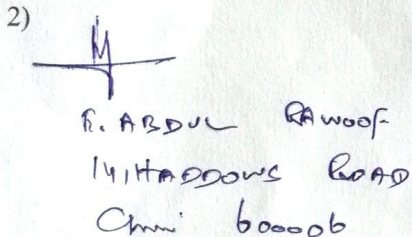 2)
K. ABDUL RAWOOF
14, HADDOWS ROAD
Chennai 600006